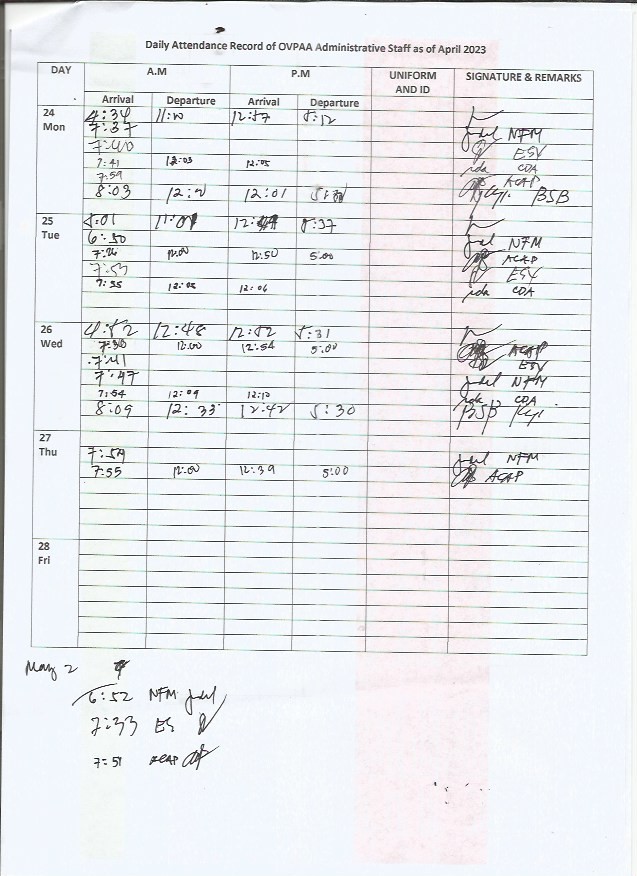 Daily Attendance Record of OVPAA Administrative Staff as of April 2023
DAY A.M P.M UNIFORM AND ID SIGNATURE & REMARKS
Arrival Departure Arrival Departure
24 Mon 4:34 12:57 5:12
7:37 NFM
7:40 ESV
7:41 12:03 12:05 CDA
7:59 ACAP
8:03 12:01 BSB
25 Tue 5:01 5:37
6:50 NFM
7:26 12:00 12:50 5:00 ACAP
7:53 ESV
7:55 12:05 12:06 CDA
26 Wed 4:52 12:48 12:52 5:31
7:30 12:00 12:54 5:00 ACAP
7:41 ESV
7:47 NFM
7:54 12:09 12:10 CDA
8:09 12:33 12:42 5:30 BSB
27 Thu
7:54 NFM
7:55 12:00 12:39 5:00 ACAP
28 Fri
May 2
6:52 NFM
7:33 ES
7:51 ACAP